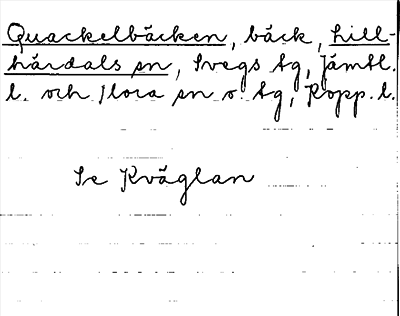 Quackelbäcken, bäck, Lill-
härdals sn, Svegs tg, Jämtl.
l. och Mora sn o. tg, Kopp. l.
Se Kväglan